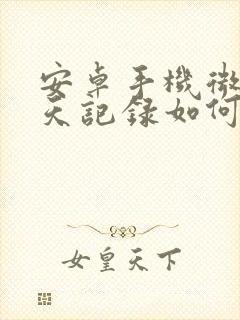 安卓手機微
天記録如何
女皇天下